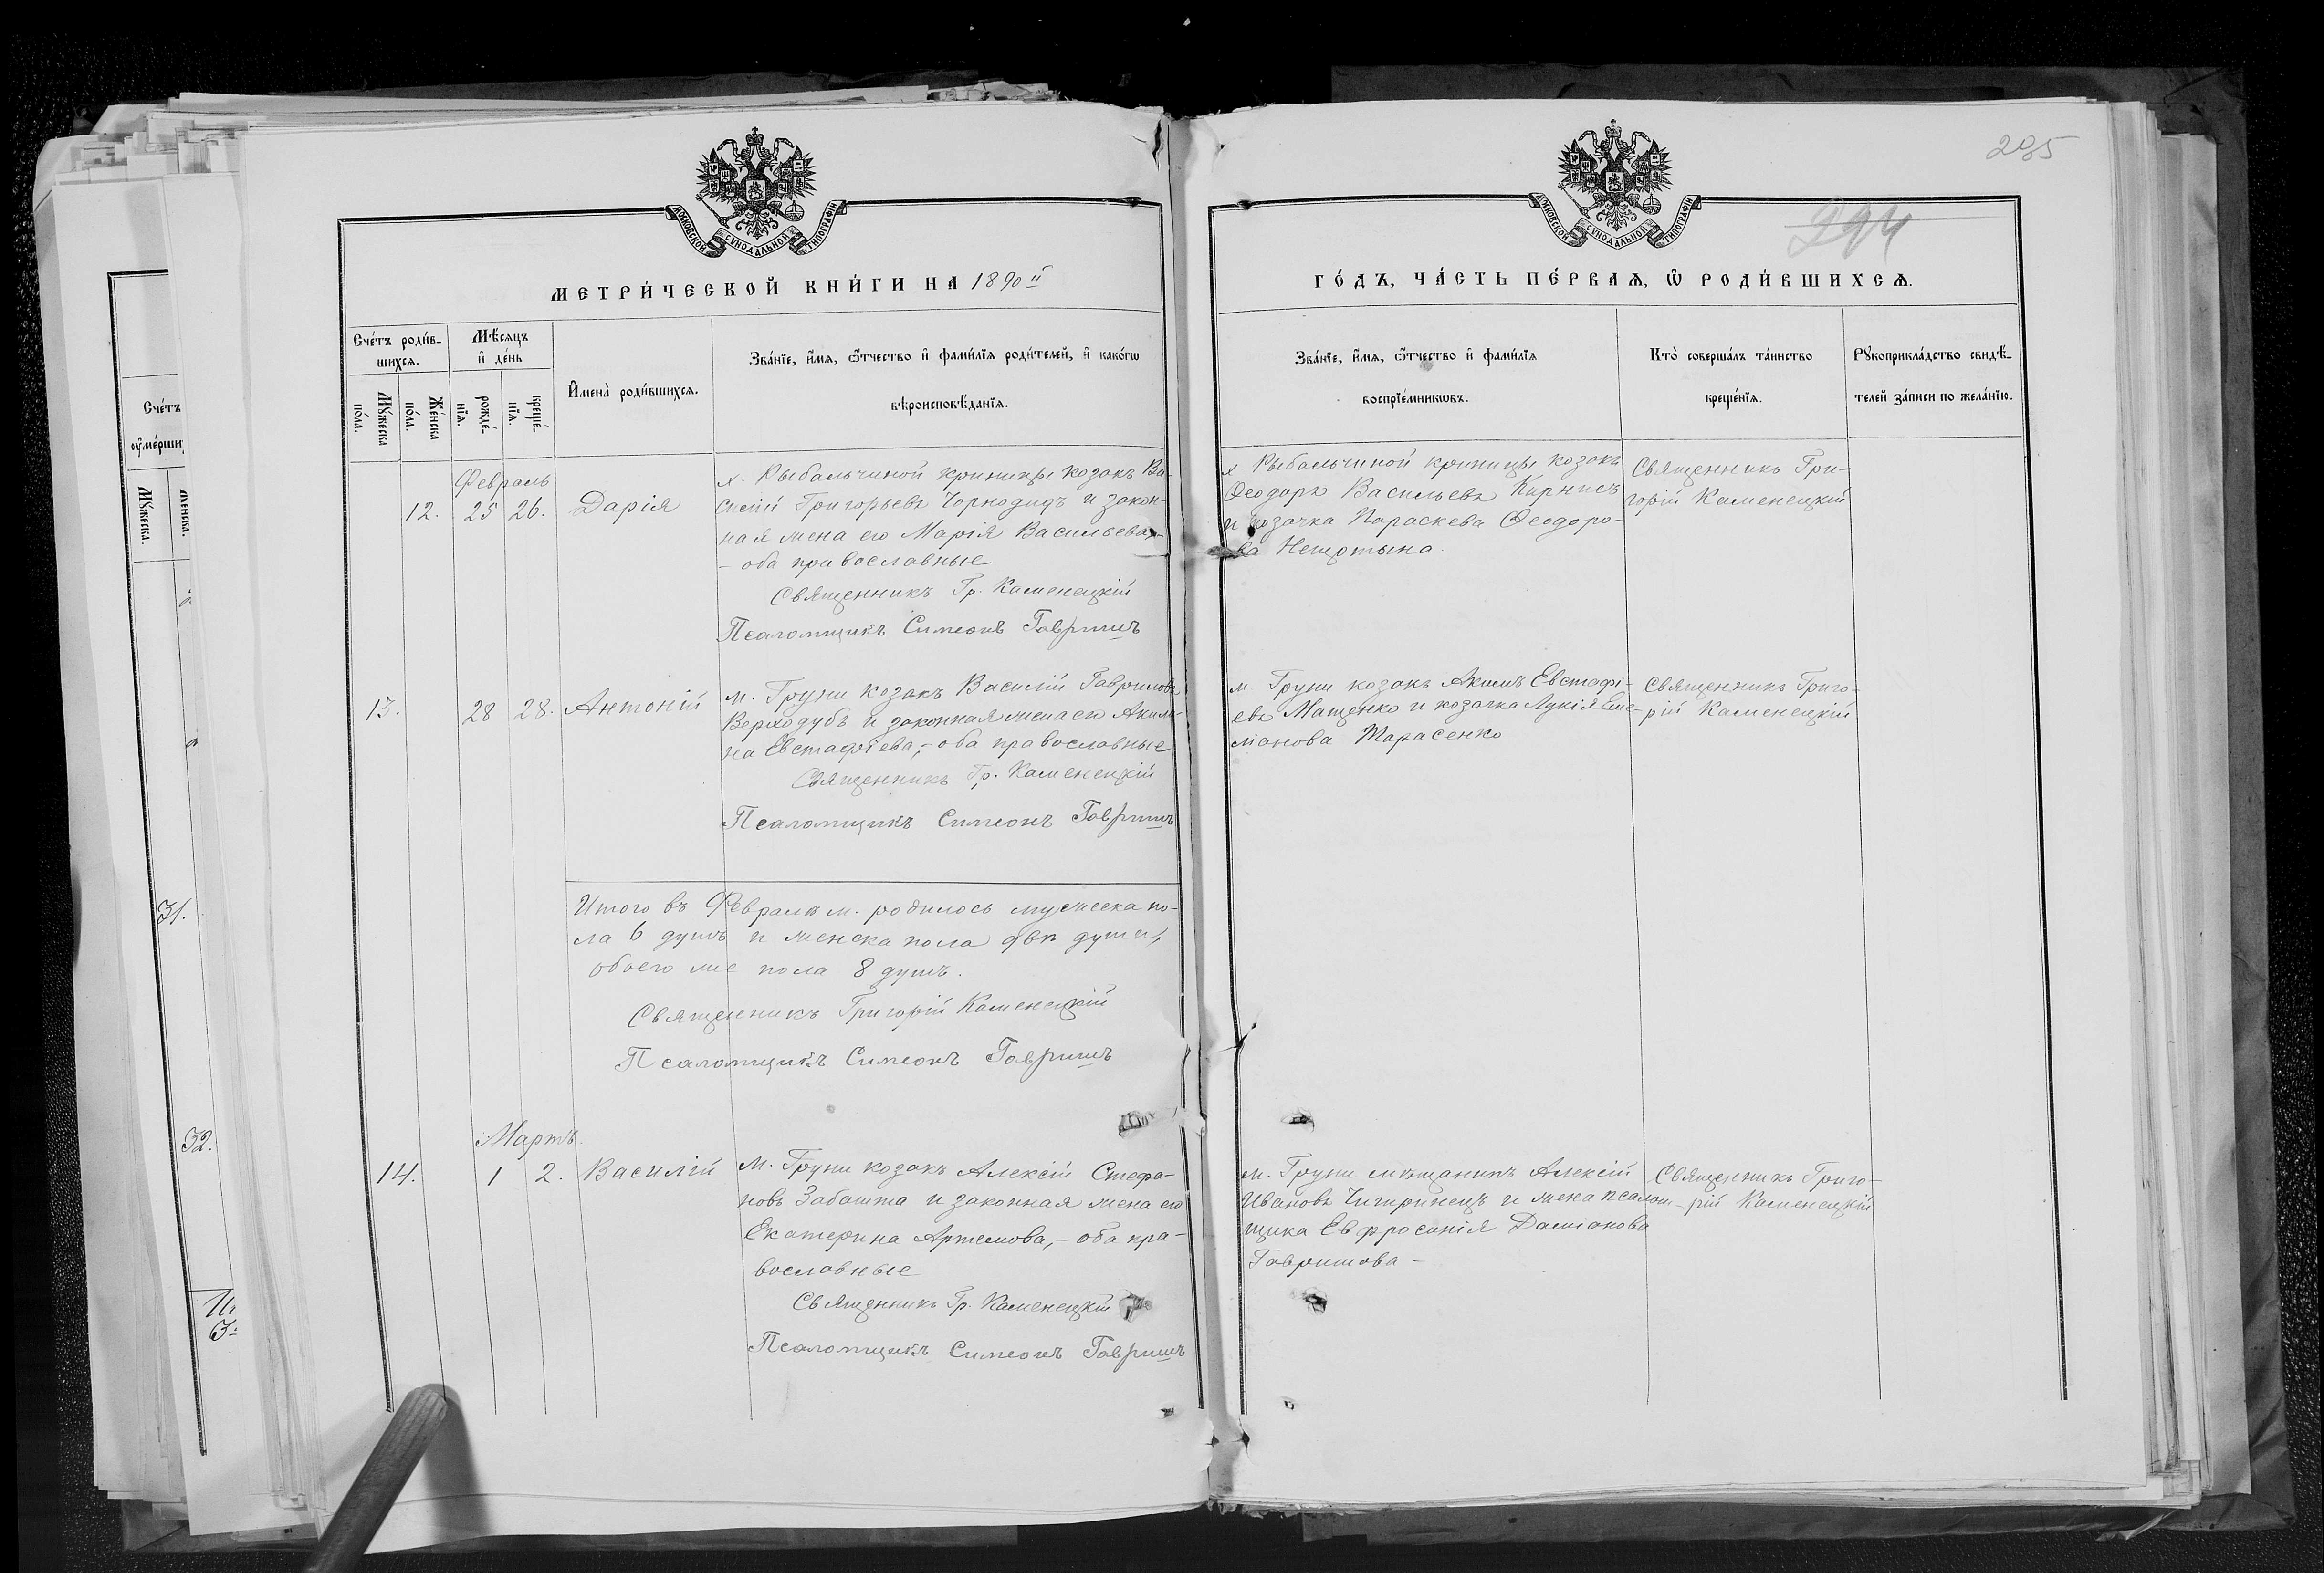 МОСКОВСКОЙ СѴНОДАЛЬНОЙ ТИПОГРАФІИ
МЕТРИ́ЧЕСКОЙ КНИ́ГИ НА 1890й
Сче́тъ роди́в-
шихсѧ.
Мѣ́сѧцъ
и҆ де́нь
Мꙋ́жеска
по́ла.
Же́нска
по́ла.
рожде́-
нїѧ.
креще́-
нїѧ.
И҆мена̀ роди́вшихсѧ.
Зва́нїе, и҆́мѧ, ѻ҆́тчество и҆ фами́лїѧ роди́телей, и҆ како́гѡ
вѣроисповѣ́данїѧ.
Февраль
12. 25 26. Дарія
х. Рыбальчиной криницы козакъ Ва-
силій Григорьевъ Чорнодидъ и закон-
ная жена его Марія Васильева,-
- оба православные
Священникъ Гр. Каменецкій
Псаломщикъ Симеонъ Гавришъ
13. 28 28. Антоній
м. Груни козакъ Василій Гавриловъ
Верходубъ и законная жена его Акили-
на Евстафіева,- оба православные
Священникъ Гр. Каменецкій
Псаломщикъ Симеонъ Гавришъ
Итого въ Февралѣ м. родилось мужеска по-
ла 6 душъ и женска пола двѣ души,
обоего же пола 8 душъ.
Священникъ Григорій Каменецкій
Псаломщикъ Симеонъ Гавришъ
Мартъ.
14. 1 2. Василій
м. Груни козакъ Алексій Стефа-
новъ Забашта и законная жена его
Екатерина Артемова,- оба пра-
вославные
Священникъ Гр. Каменецкій
Псаломщикъ Симеонъ Гавришъ
295
294
МОСКОВСКОЙ СѴНОДАЛЬНОЙ ТИПОГРАФІИ
ГО́ДЪ, ЧА́СТЬ ПЕ́РВАѦ, Ѡ҆ РОДИ́ВШИХСѦ.
Зва́нїе, и҆́мѧ, ѻ҆́тчество и҆ фами́лїѧ
воспрїе́мникѡвъ.
Кто̀ соверша́лъ та́инство
креще́нїѧ.
Рꙋкоприкла́дство свидѣ́-
телей за́писи по жела́нїю.
х. Рыбальчиной криницы козакъ
Ѳеодоръ Васильевъ Кирнисъ
и козачка Параскева Ѳеодоро-
ва
Священникъ Гри-
горій Каменецкій
м. Груни козакъ Акимъ Евстафі-
евъ Мащенко и козачка Лукія Еме-
ліанова Тарасенко
Священникъ Григо-
рій Каменецкій
м. Груни мѣщанинъ Алексій
Ивановъ Чигринецъ и жена псалом-
щика Евфросинія Даміанова
Гавришова -
Священникъ Григо-
рій Каменецкій
Сче́тъ
Мꙋ́жеска.
31.
32.